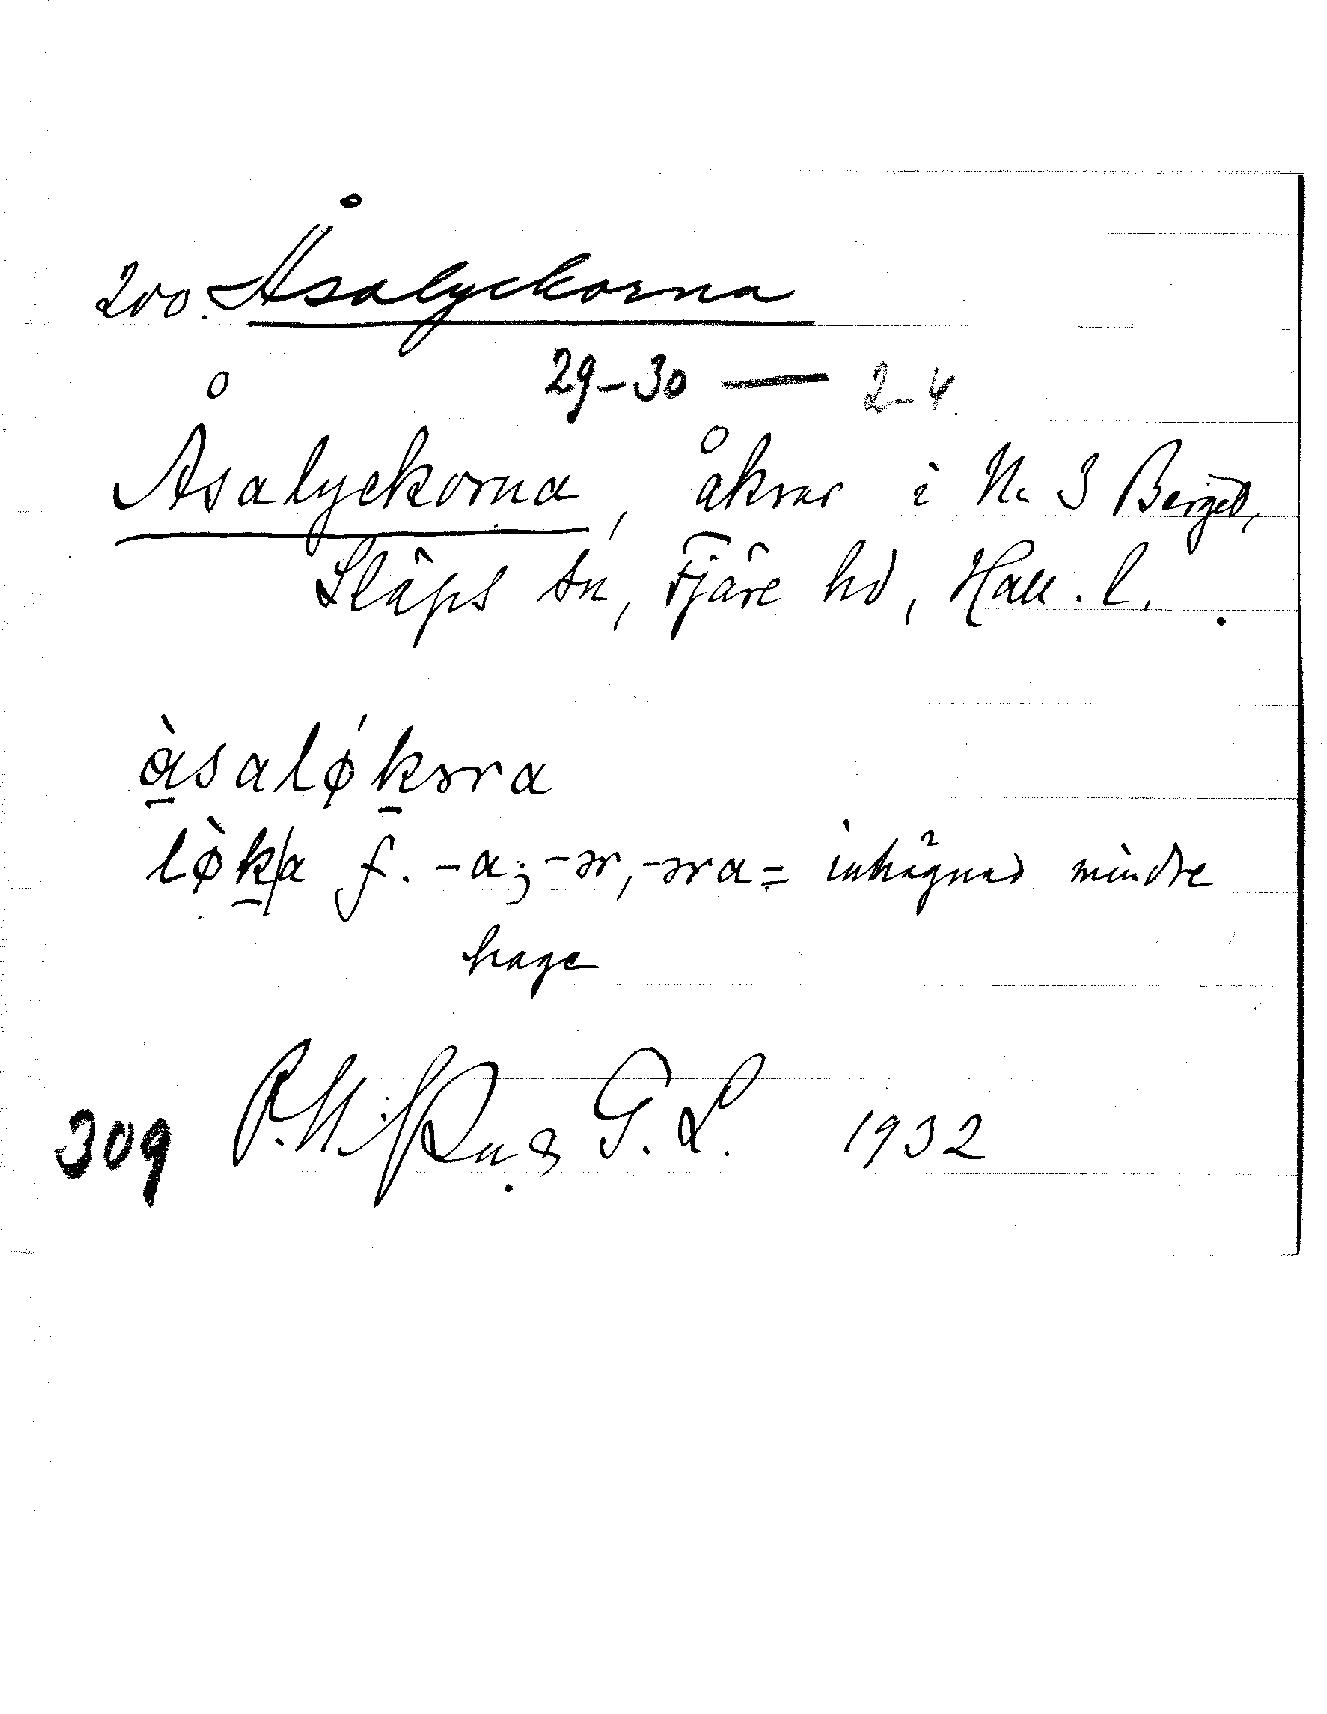 200. Åsalyckorna
29-30 — 2-4
Åsalyckorna, åkrar i N. 3 Berget,
Släps sn, Fjäre hd, Hall. l.
àsaløkəra
løk/a f. -a; -ər, -əra = inhägnad mindre
hage
309 G. L. 1932